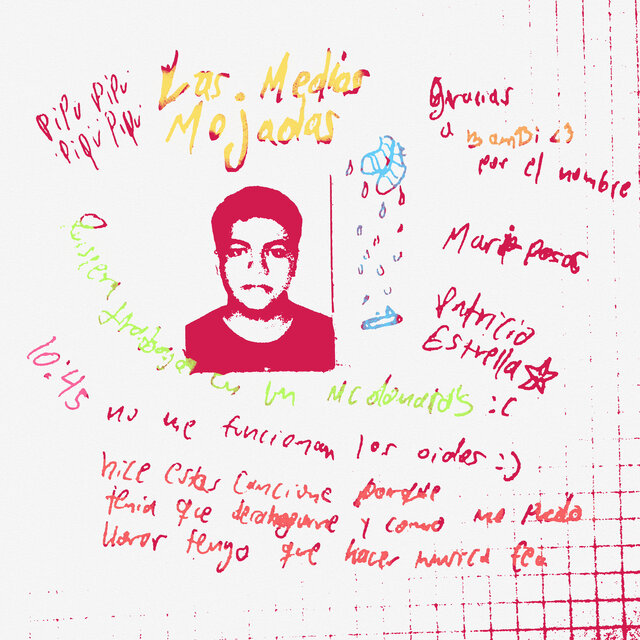 Las Medias
Mojadas
Pipu Pipu
Pipu Pipu
Gracias
a BamBi <3
por el nombre
Mariposas
Patricio
Estrella
Quisiera trabajar en un McDonald's :c
10:45
no me funcionan los oidos :)
hice estas cancione porque
tenia que desahogarme y como no puedo
llorar tengo que hacer musica fea